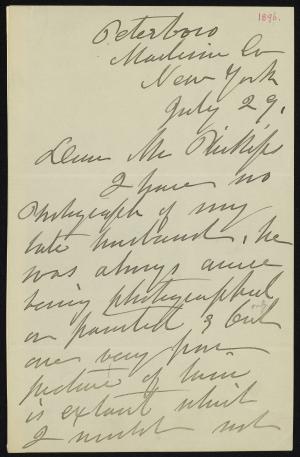 1896.
Peterboro
Madison Co
New York
July 29.
Dear Mr Phillips
I have no
Photograph of my
late husband, he
was always averse
being photographed
or painted & but
only
one very poor
picture of him
is extant which
I would not